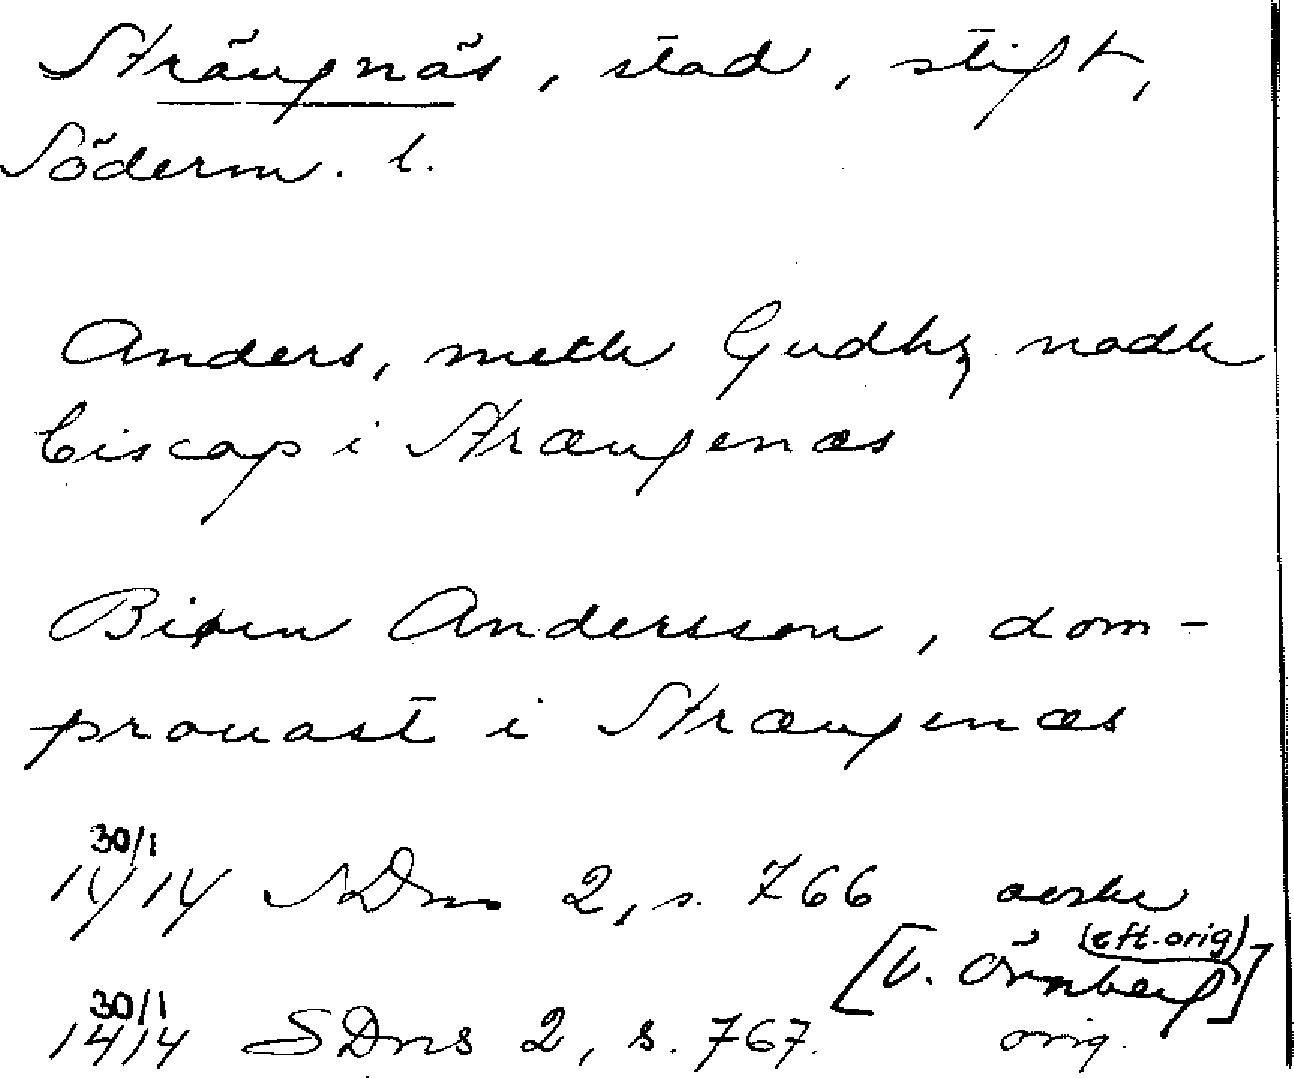 Strängnäs, stad, stift,
Söderm. l.
Anders, meth Gudhz nadh
biscop i Strængenæs
Biørn Andersson, dom-
prouast i Strængenæs
30/1
1414 SDns 2, s. 766 avskr
(eft. orig)
[V. Örnberg]
30/1
1414 SDns 2, s. 767. orig.